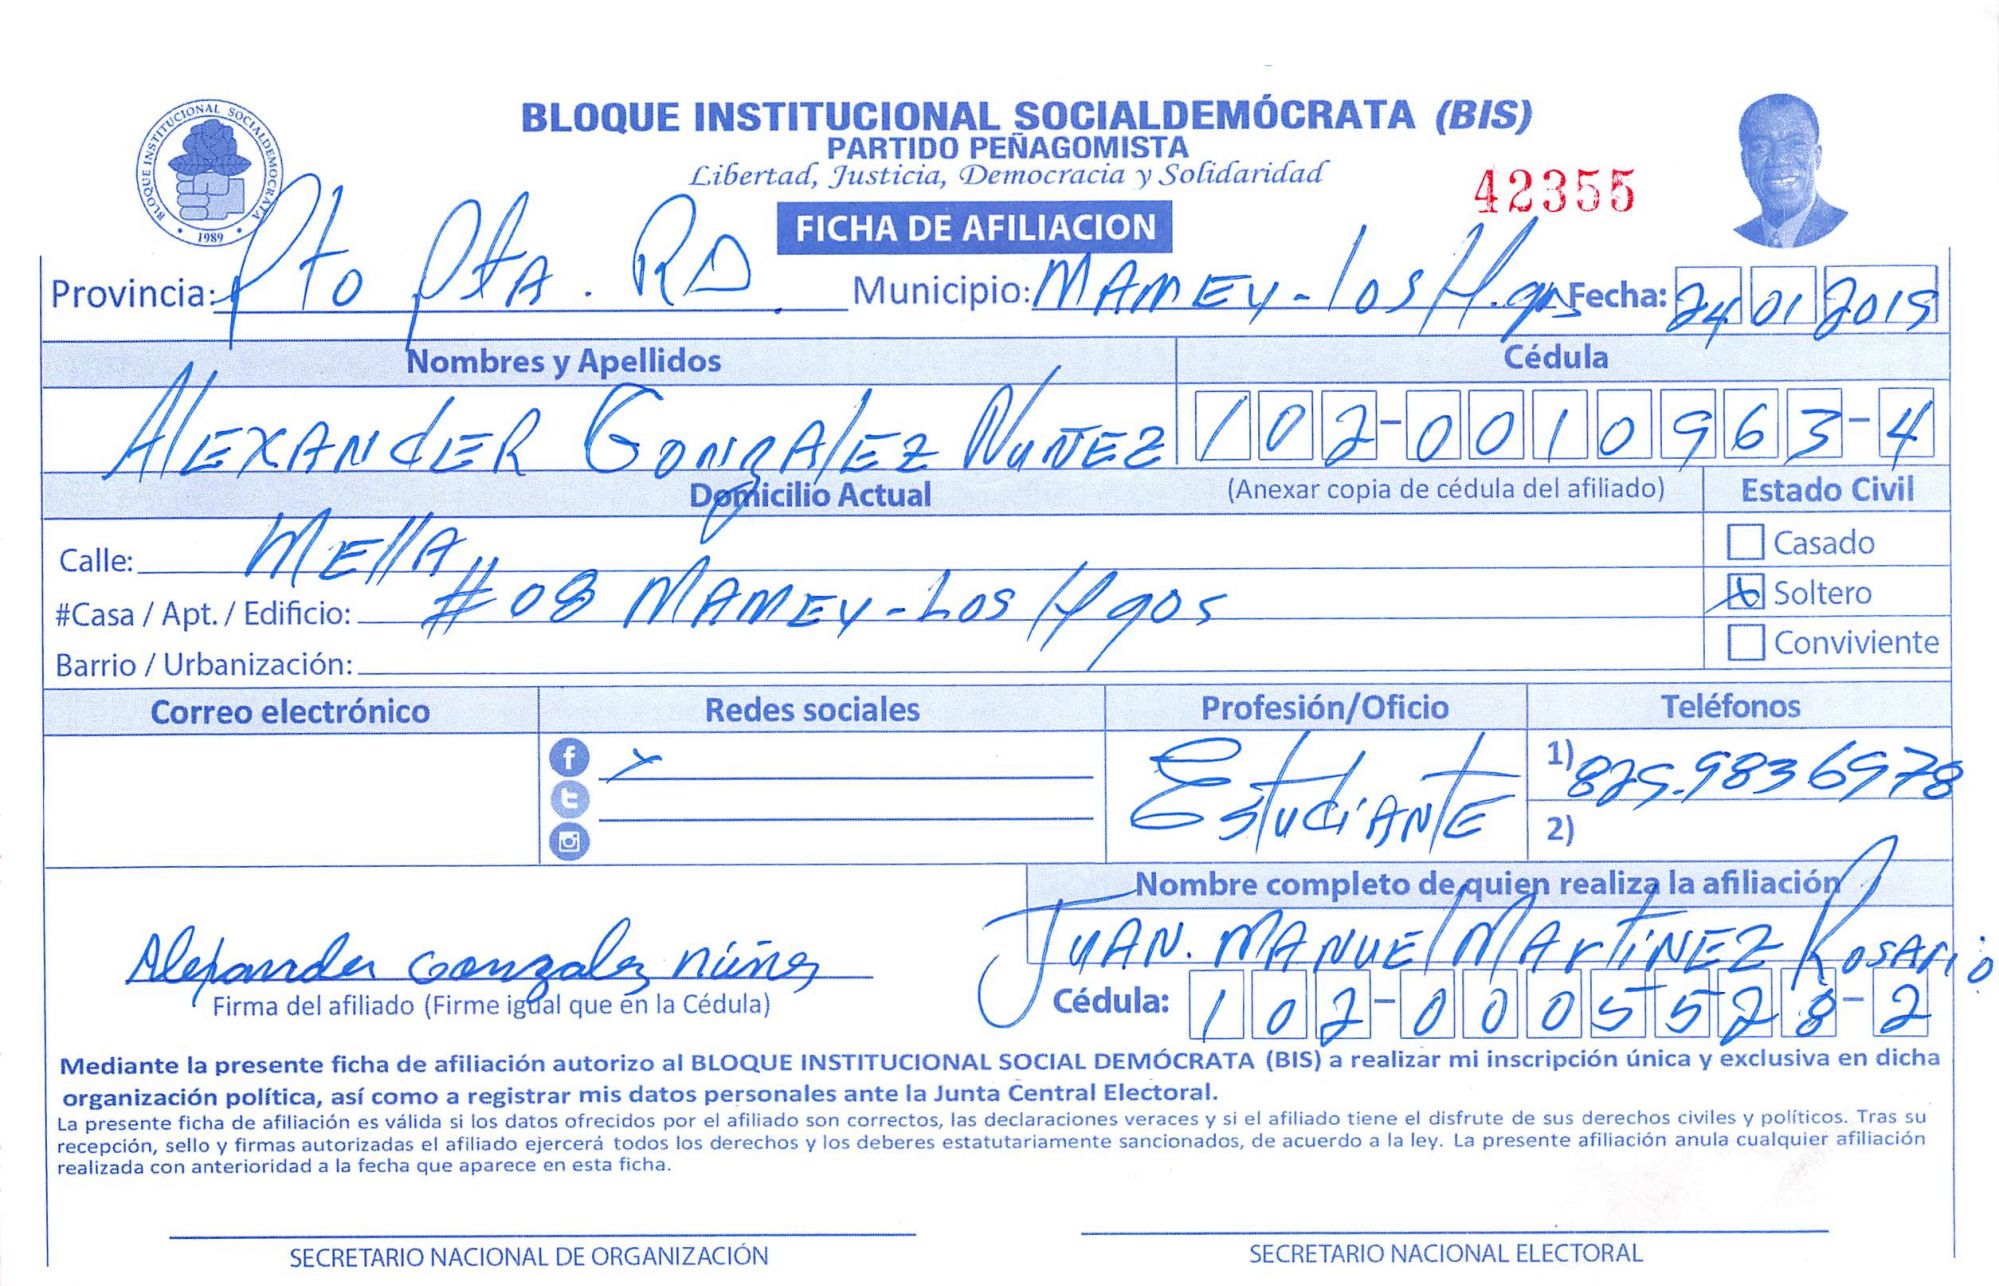 BLOQUE INSTITUCIONAL SOCIALDEMÓCRATA (BIS)
PARTIDO PEÑAGOMISTA
Libertad, Justicia, Democracia y Solidaridad
42355
BLOQUE INSTITUCIONAL SOCIALDEMOCRATA
1989
FICHA DE AFILIACION
Provincia: Pto Pta. RD. Municipio: MAMEY-Los H.gos Fecha: 24 01 2019
Nombres y Apellidos Cédula
ALEXANdER GONZALEZ NUÑEZ 102-0010963-4
Domicilio Actual (Anexar copia de cédula del afiliado) Estado Civil
Calle: MEllA Casado
#Casa / Apt. / Edificio: #08 MAMEY-LOS Hgos Soltero
Barrio / Urbanización: Conviviente
Correo electrónico Redes sociales Profesión/Oficio Teléfonos
EstudiANtE 1) 829.9836978
2)
Nombre completo de quien realiza la afiliación
JUAN. MANUEl MArtiNEZ ROSArio
Alexander Gonzalez núñez
Firma del afiliado (Firme igual que en la Cédula) Cédula: 102-0005528-2
Mediante la presente ficha de afiliación autorizo al BLOQUE INSTITUCIONAL SOCIAL DEMÓCRATA (BIS) a realizar mi inscripción única y exclusiva en dicha
organización política, así como a registrar mis datos personales ante la Junta Central Electoral.
La presente ficha de afiliación es válida si los datos ofrecidos por el afiliado son correctos, las declaraciones veraces y si el afiliado tiene el disfrute de sus derechos civiles y políticos. Tras su
recepción, sello y firmas autorizadas el afiliado ejercerá todos los derechos y los deberes estatutariamente sancionados, de acuerdo a la ley. La presente afiliación anula cualquier afiliación
realizada con anterioridad a la fecha que aparece en esta ficha.
SECRETARIO NACIONAL DE ORGANIZACIÓN SECRETARIO NACIONAL ELECTORAL